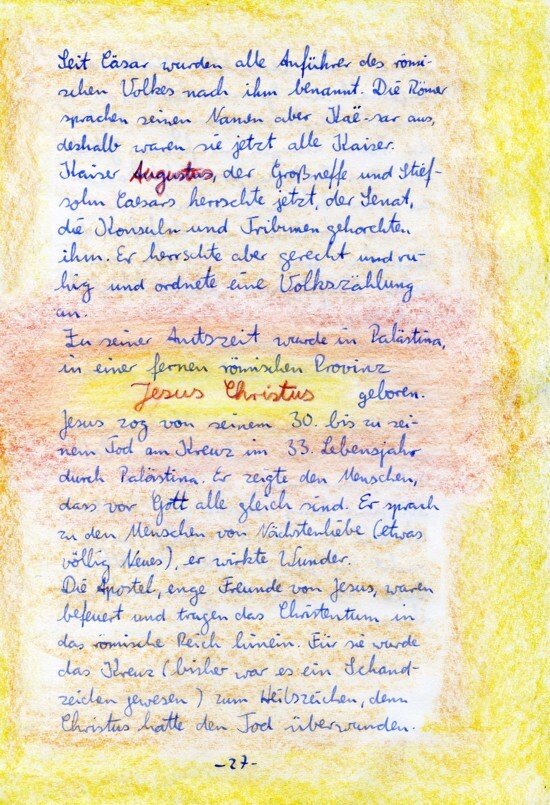 Seit Cäsar wurden alle Anführer des römi-
schen Volkes nach ihm benannt. Die Römer
sprachen seinen Namen aber Kaë-sar aus,
deshalb waren sie jetzt alle Kaiser.
Kaiser Augustus, der Großneffe und Stief-
sohn Caesars herrschte jetzt, der Senat,
die Konsuln und Tribunen gehorchten
ihm. Er herrschte aber gerecht und ru-
hig und ordnete eine Volkszählung
an.
Zu seiner Amtszeit wurde in Palästina,
in einer fernen römischen Provinz
Jesus Christus geboren.
Jesus zog von seinem 30. bis zu sei-
nem Tod am Kreuz im 33. Lebensjahr
durch Palästina. Er zeigte den Menschen,
dass vor Gott alle gleich sind. Er sprach
zu den Menschen von Nächstenliebe (etwas
völlig Neues), er wirkte Wunder.
Die Apostel, enge Freunde von Jesus, waren
befeuert und trugen das Christentum in
das römische Reich hinein. Für sie wurde
das Kreuz (bisher war es ein Schand-
zeichen gewesen) zum Heilszeichen, denn
Christus hatte den Tod überwunden.
-27-